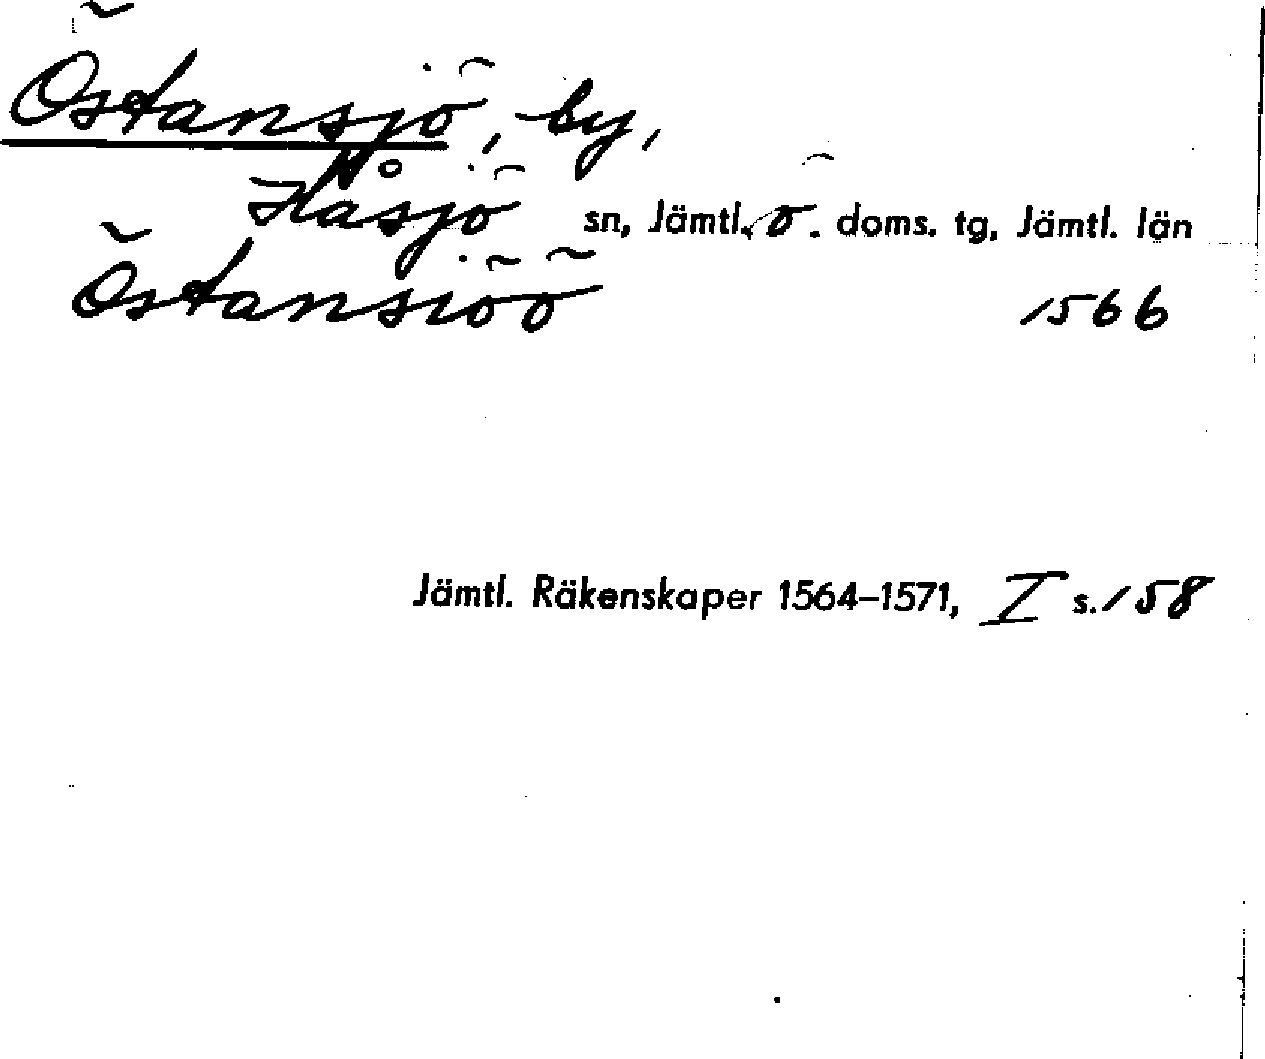 Östansjö, by,
Håsjö sn, Jämtl. ö. doms. tg, Jämtl. län
Östansiöö 1566
Jämtl. Räkenskaper 1564–1571, I s. 158